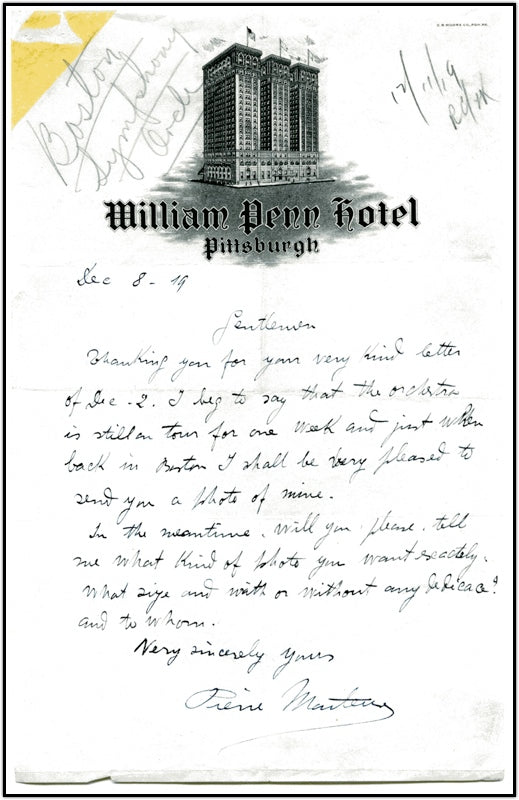 Boston
Symphony
Orch
12/11/19
William Penn Hotel
Pittsburgh
Dec 8 - 19
Gentlemen
Thanking you for your very kind letter
of Dec - 2. I beg to say that the orchestra
is still on tour for one week and just when
back in Boston I shall be very pleased to
send you a photo of mine.
In the meantime. Will you please. tell
me what kind of photo you want exactely.
What size and with or without any dedicace?
and to whom.
Very sincerely yours
Pierre Monteux